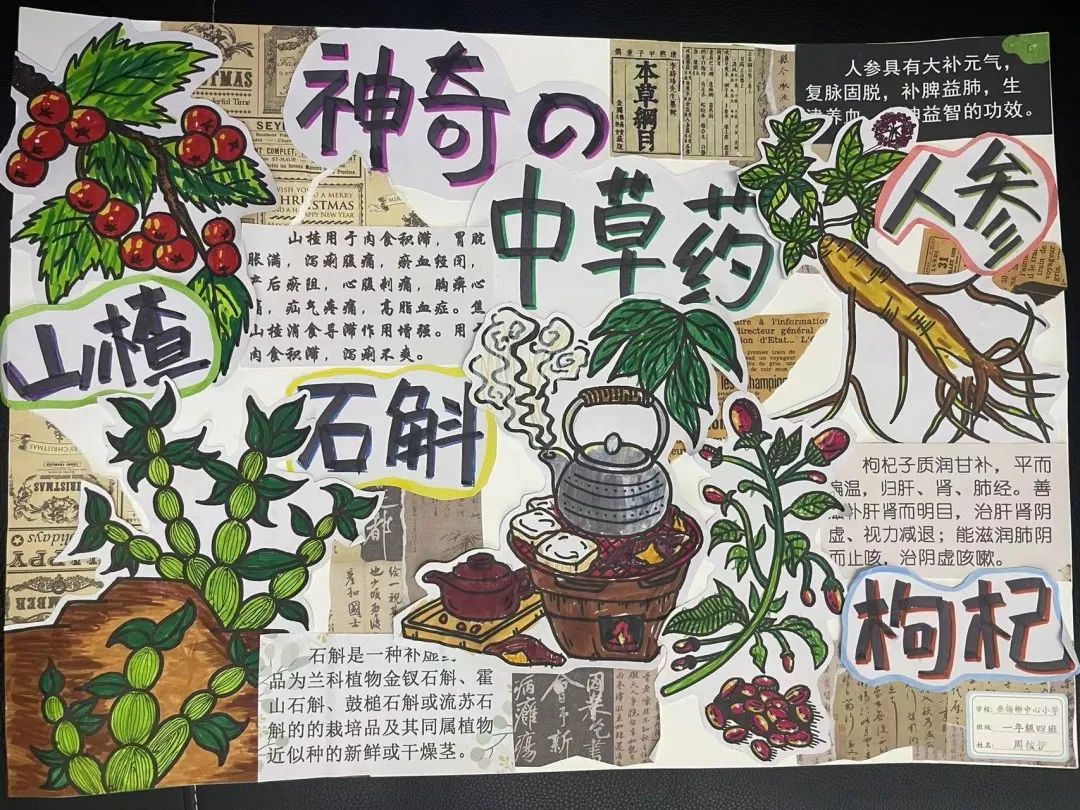 神奇の
中草药
本草綱目
人参具有大补元气，
复脉固脱，补脾益肺，生
养血 益智的功效。
人参
山楂用于肉食积滞，胃脘
胀满，泻痢腹痛，瘀血经闭，
产后瘀阻，心腹刺痛，胸痹心
疝气疼痛，高脂血症。焦
山楂消食导滞作用增强。用
肉食积滞，泻痢不爽。
山楂
石斛
石斛是一种补
品为兰科植物金钗石斛、霍
山石斛、鼓槌石斛或流苏石
斛的的栽培品及其同属植物
近似种的新鲜或干燥茎。
枸杞子质润甘补，平而
偏温，归肝、肾、肺经。善
补肝肾而明目，治肝肾阴
虚、视力减退；能滋润肺阴
而止咳，治阴虚咳嗽。
枸杞
学校: 桑杨柳中心小学
班级: 一年级四班
姓名: 周
CHRISTMAS
WISH YOU A MERRY
CHRISTMAS
HAPPY NEW YEAR
à l'information
directeur général
on d'Etat...
premier train de
les Champion